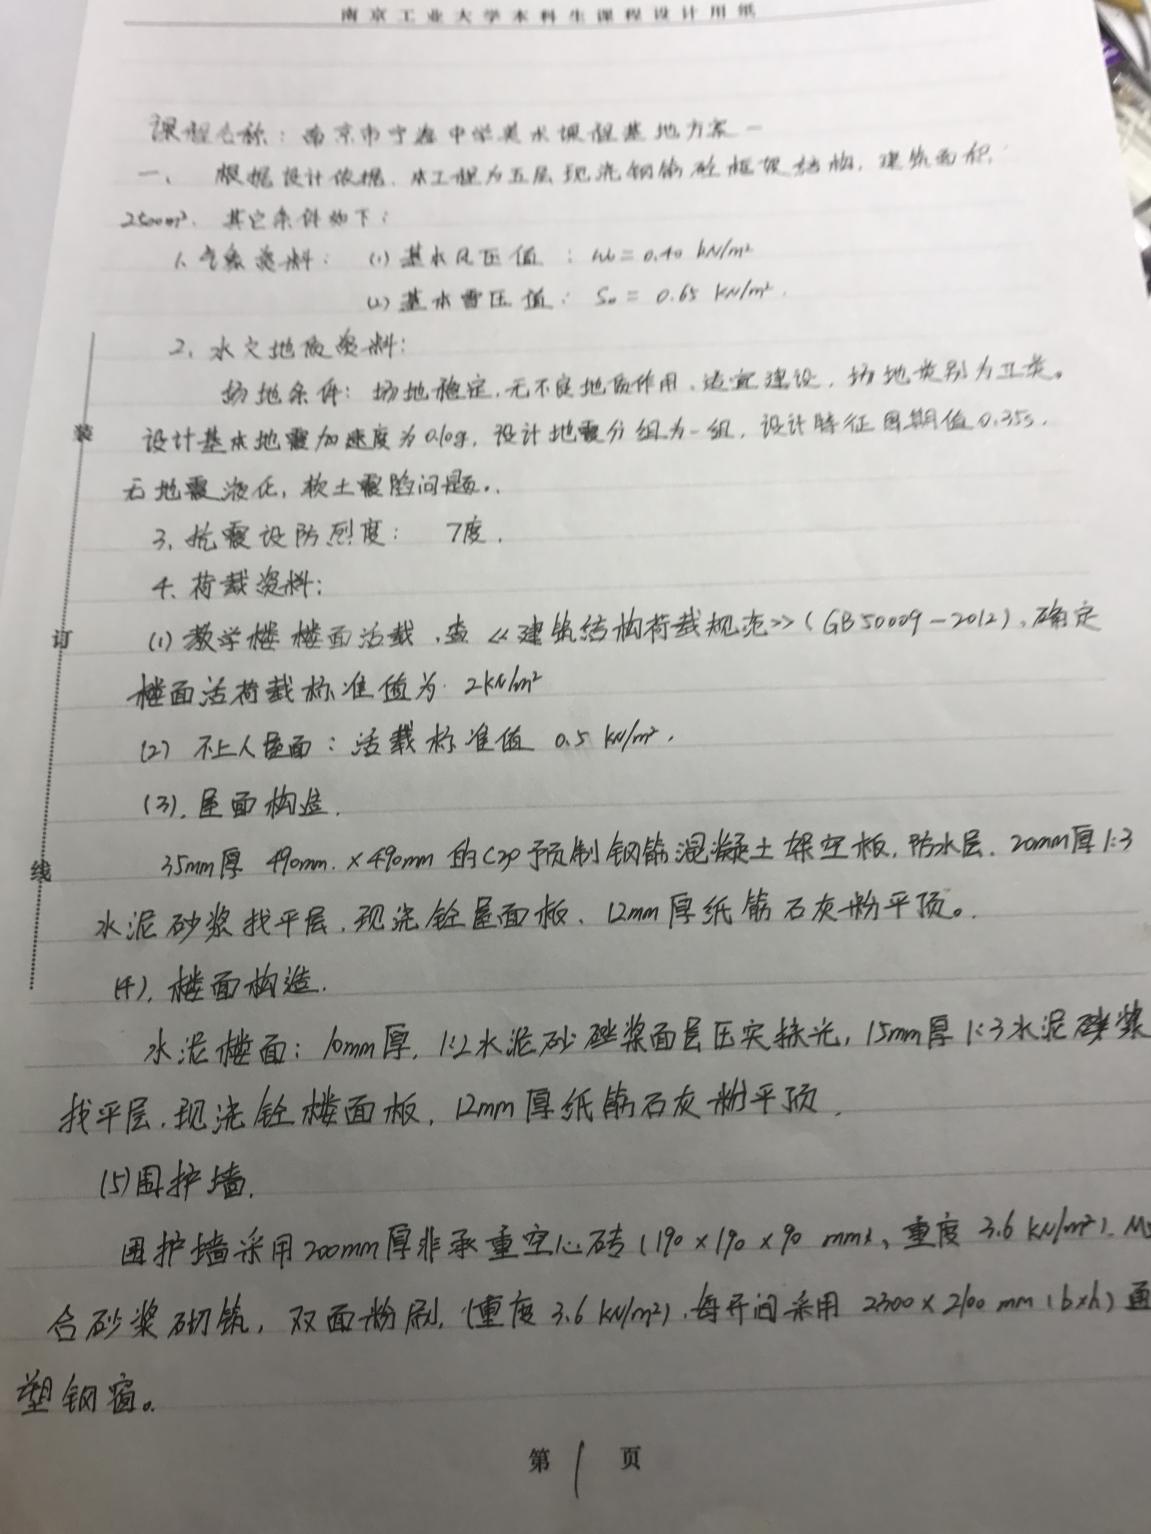 南京工业大学本科生课程设计用纸
课程名称：南京市宁海中学美术课程基地方案一
一、根据设计依据，本工程为五层现浇钢筋砼框架结构，建筑面积
2500m²．其它条件如下：
1、气象资料：(1)基本风压值：W₀=0.40 kN/m²
(2)基本雪压值：S₀=0.65 kN/m².
2、水文地质资料：
场地条件：场地稳定，无不良地质作用、适宜建设，场地类别为Ⅱ类。
设计基本地震加速度为0.10g，设计地震分组为一组，设计特征周期值0.35s，
无地震液化，软土震陷问题。
3、抗震设防烈度：7度．
4、荷载资料：
(1)教学楼楼面活载，查《建筑结构荷载规范》(GB50009-2012)，确定
楼面活荷载标准值为 2kN/m²
(2) 不上人屋面：活载标准值 0.5 kN/m²．
(3)．屋面构造．
35mm厚 490mm×490mm 的C20预制钢筋混凝土架空板，防水层．20mm厚1:3
水泥砂浆找平层，现浇砼屋面板、12mm厚纸筋石灰粉平顶。
(4)．楼面构造．
水泥楼面：10mm厚，1:2水泥砂浆面层压实抹光，15mm厚1:3水泥砂浆
找平层，现浇砼楼面板，12mm厚纸筋石灰粉平顶．
(5)围护墙．
围护墙采用200mm厚非承重空心砖(190×190×90 mm，重度 3.6 kN/m²)．M
合砂浆砌筑，双面粉刷，(重度 3.6 kN/m²)，每开间采用 2300×2100 mm (b×h) 通
塑钢窗。
第 1 页
装
订
线